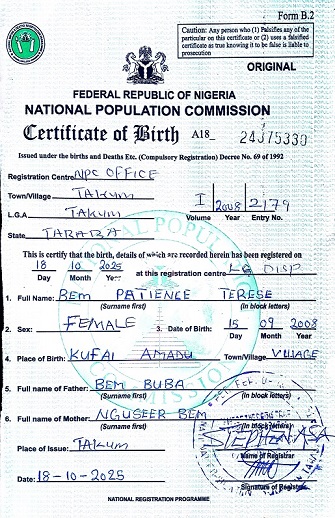 Form B.2
Caution: Any person who (1) Falsifies any of the particular on this certificate or (2) uses a falsified certificate as true knowing it to be false is liable to prosecution
ORIGINAL
FEDERAL REPUBLIC OF NIGERIA
NATIONAL POPULATION COMMISSION
Certificate of Birth A18 24375330
Issued under the births and Deaths Etc. (Compulsory Registration) Decree No. 69 of 1992
Registration Centre NPC OFFICE
Town/Village TAKUM I 2008 2179
L.G.A TAKUM Volume Year Entry No.
State TARABA
This is certify that the birth, details of which are recorded herein has been registered on
18 10 2025 at this registration centre LG DISP
Day Month Year
1. Full Name: BEM PATIENCE TERESE
(Surname first) (In block letters)
2. Sex: FEMALE 3. Date of Birth: 15 09 2008
Day Month Year
4. Place of Birth: KUFAI AMADU Town/Village VILLAGE
5. Full name of Father: BEM BUBA
(Surname first) (In block letters)
6. Full name of Mother: NGUSEER BEM
(Surname first) (In block letters)
Place of Issue: TAKUM STEPHEN ASA
Name of Registrar
Date: 18-10-2025
Signature of Registrar
NATIONAL REGISTRATION PROGRAMME